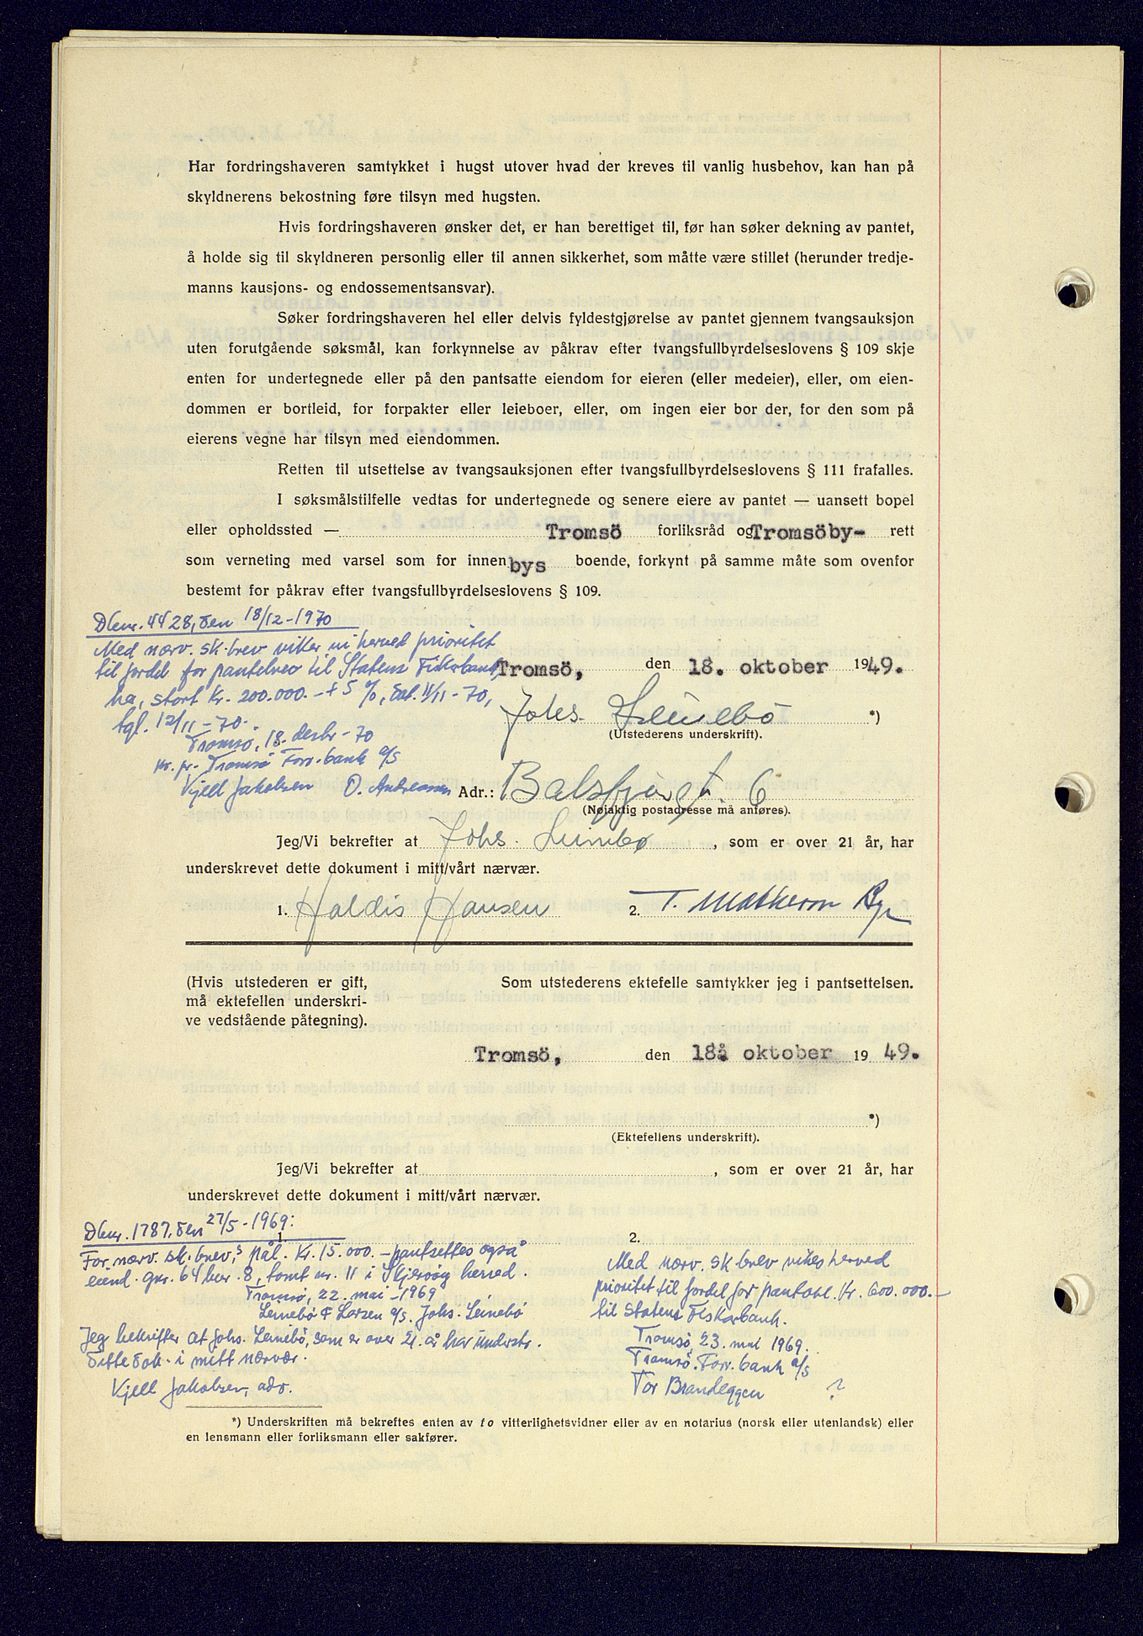 Har fordringshaveren samtykket i hugst utover hvad der kreves til vanlig husbehov, kan han på
skyldnerens bekostning føre tilsyn med hugsten.
Hvis fordringshaveren ønsker det, er han berettiget til, før han søker dekning av pantet,
å holde sig til skyldneren personlig eller til annen sikkerhet, som måtte være stillet (herunder tredje-
manns kausjons- og endossementsansvar).
Søker fordringshaveren hel eller delvis fyldestgjørelse av pantet gjennem tvangsauksjon
uten forutgående søksmål, kan forkynnelse av påkrav efter tvangsfullbyrdelseslovens § 109 skje
enten for undertegnede eller på den pantsatte eiendom for eieren (eller medeier), eller, om eien-
dommen er bortleid, for forpakter eller leieboer, eller, om ingen eier bor der, for den som på
eierens vegne har tilsyn med eiendommen.
Retten til utsettelse av tvangsauksjonen efter tvangsfullbyrdelseslovens § 111 frafalles.
I søksmålstilfelle vedtas for undertegnede og senere eiere av pantet — uansett bopel
eller opholdssted — Tromsö forliksråd og Tromsöby- rett
som verneting med varsel som for innen bys boende, forkynt på samme måte som ovenfor
bestemt for påkrav efter tvangsfullbyrdelseslovens § 109.
Dbnr. 4428, den 18/12-1970
Med nærv. sk.brev viker vi herved prioritet
til fordel for pantebrev til Statens Fiskarbank,
stort kr. 200.000.- + 5 %, dat. 11/11-70,
tgl. 12/11-70.
Tromsø, 18. desbr-70
pr. pr. Tromsø Forr.bank a/s
Kjell Jakobsen O. Andreassen
Tromsö, den 18. oktober 1949.
Johs. Leinebö *)
(Utstederens underskrift).
Adr.: Balsfjordgt. 6
(Nøiaktig postadresse må anføres).
Jeg/Vi bekrefter at Johs. Leinebø, som er over 21 år, har
underskrevet dette dokument i mitt/vårt nærvær.
1. Haldis Hansen 2. T.
(Hvis utstederen er gift, Som utstederens ektefelle samtykker jeg i pantsettelsen.
må ektefellen underskri-
ve vedstående påtegning).
Tromsö, den 18. oktober 1949.
*)
(Ektefellens underskrift).
Jeg/Vi bekrefter at , som er over 21 år, har
underskrevet dette dokument i mitt/vårt nærvær.
1. 2.
Dbnr. 1787, den 27/5-1969:
For nærv. sk.brev, pål. Kr. 15.000.- pantsettes også
eiend. gnr. 64 bnr. 8, tomt nr. 11 i Skjervøy herred.
Tromsø, 22. mai-1969
Leinebö & Larsen a/s. Johs. Leinebö
Jeg bekrefter at Johs. Leinebö, som er over 21 år har underskr.
dette dok. i mitt nærvær.
Kjell Jakobsen, adv.
Med nærv. sk brev vikes herved
prioritet til fordel for pantobl. kr. 600.000.-
til Statens Fiskarbank.
Tromsø, 23. mai 1969.
Tromsø Forr.bank a/s
Tor Brandeggen ?
*) Underskriften må bekreftes enten av to vitterlighetsvidner eller av en notarius (norsk eller utenlandsk) eller
en lensmann eller forliksmann eller sakfører.